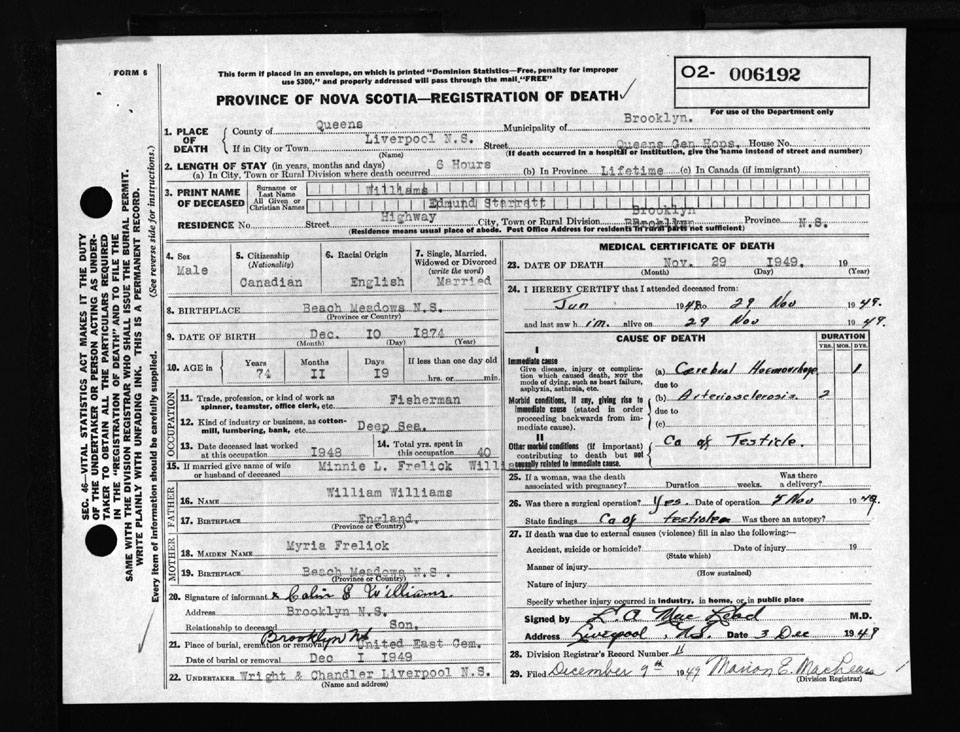 FORM 6
This form if placed in an envelope, on which is printed "Dominion Statistics—Free, penalty for improper
use $300," and properly addressed will pass through the mail, "FREE"
O2- 006192
For use of the Department only
PROVINCE OF NOVA SCOTIA—REGISTRATION OF DEATH
SEC. 46—VITAL STATISTICS ACT MAKES IT THE DUTY
OF THE UNDERTAKER OR PERSON ACTING AS UNDER-
TAKER TO OBTAIN ALL THE PARTICULARS REQUIRED
IN THE "REGISTRATION OF DEATH" AND TO FILE THE
SAME WITH THE DIVISION REGISTRAR WHO SHALL ISSUE THE BURIAL PERMIT.
WRITE PLAINLY WITH UNFADING INK. THIS IS A PERMANENT RECORD.
Every item of information should be carefully supplied. (See reverse side for instructions.)
1. PLACE OF DEATH County of Queens Municipality of Brooklyn.
If in City or Town Liverpool N.S. Street Queens Gen Hops. House No.
(Name) (If death occurred in a hospital or institution, give the name instead of street and number)
2. LENGTH OF STAY (in years, months and days)
(a) In City, Town or Rural Division where death occurred 6 Hours (b) In Province Lifetime (c) In Canada (if immigrant)
3. PRINT NAME OF DECEASED Surname or Last Name Williams
All Given or Christian Names Edmund Starratt
RESIDENCE No. Street Highway City, Town or Rural Division Brooklyn Brooklyn Province N.S.
(Residence means usual place of abode. Post Office Address for residents in rural parts not sufficient)
4. Sex Male
5. Citizenship (Nationality) Canadian
6. Racial Origin English
7. Single, Married, Widowed or Divorced (write the word) Married
8. BIRTHPLACE Beach Meadows N.S.
(Province or Country)
9. DATE OF BIRTH Dec. 10 1874
(Month) (Day) (Year)
10. AGE in Years 74 Months II Days I9 If less than one day old hrs. or min.
OCCUPATION
11. Trade, profession, or kind of work as spinner, teamster, office clerk, etc. Fisherman
12. Kind of industry or business, as cotton-mill, lumbering, bank, etc. Deep Sea.
13. Date deceased last worked at this occupation I948
14. Total yrs. spent in this occupation 40
15. If married give name of wife or husband of deceased Minnie L. Frelick Williams
FATHER
16. NAME William Williams
17. BIRTHPLACE England.
(Province or Country)
MOTHER
18. MAIDEN NAME Myria Frelick
19. BIRTHPLACE Beach Meadows N.S.
(Province or Country)
20. Signature of informant x Colin S Williams.
Address Brooklyn N.S.
Relationship to deceased Son.
21. Place of burial, cremation or removal Brooklyn NS United East Cem.
Date of burial or removal Dec I 1949
22. UNDERTAKER Wright & Chandler Liverpool N.S.
(Name and address)
MEDICAL CERTIFICATE OF DEATH
23. DATE OF DEATH Nov. 29 1949. 19
(Month) (Day) (Year)
24. I HEREBY CERTIFY that I attended deceased from:
Jun 1949 to 29 Nov 1949.
and last saw him. alive on 29 Nov 1949.
CAUSE OF DEATH
DURATION
YRS. MOS. DYS.
I
Immediate cause
Give disease, injury or complication which caused death, not the mode of dying, such as heart failure, asphyxia, asthenia, etc.
(a) Cerebral Haemorrhage 1
due to
Morbid conditions, if any, giving rise to immediate cause (stated in order proceeding backwards from immediate cause).
(b) Arteriosclerosis 2
due to
(c)
II
Other morbid conditions (if important) contributing to death but not causally related to immediate cause.
Ca of Testicle.
25. If a woman, was the death associated with pregnancy? Duration weeks. Was there a delivery?
26. Was there a surgical operation? Yes. Date of operation 5 Nov 1949.
State findings Ca of testicle Was there an autopsy?
27. If death was due to external causes (violence) fill in also the following:
Accident, suicide or homicide? Date of injury 19
(State which)
Manner of injury
(How sustained)
Nature of injury
Specify whether injury occurred in industry, in home, or in public place
Signed by MacLeod M.D.
Address Liverpool, N.S. Date 3 Dec 1949
28. Division Registrar's Record Number 11
29. Filed December 9th 1949 Marion E. MacLeas
(Division Registrar)